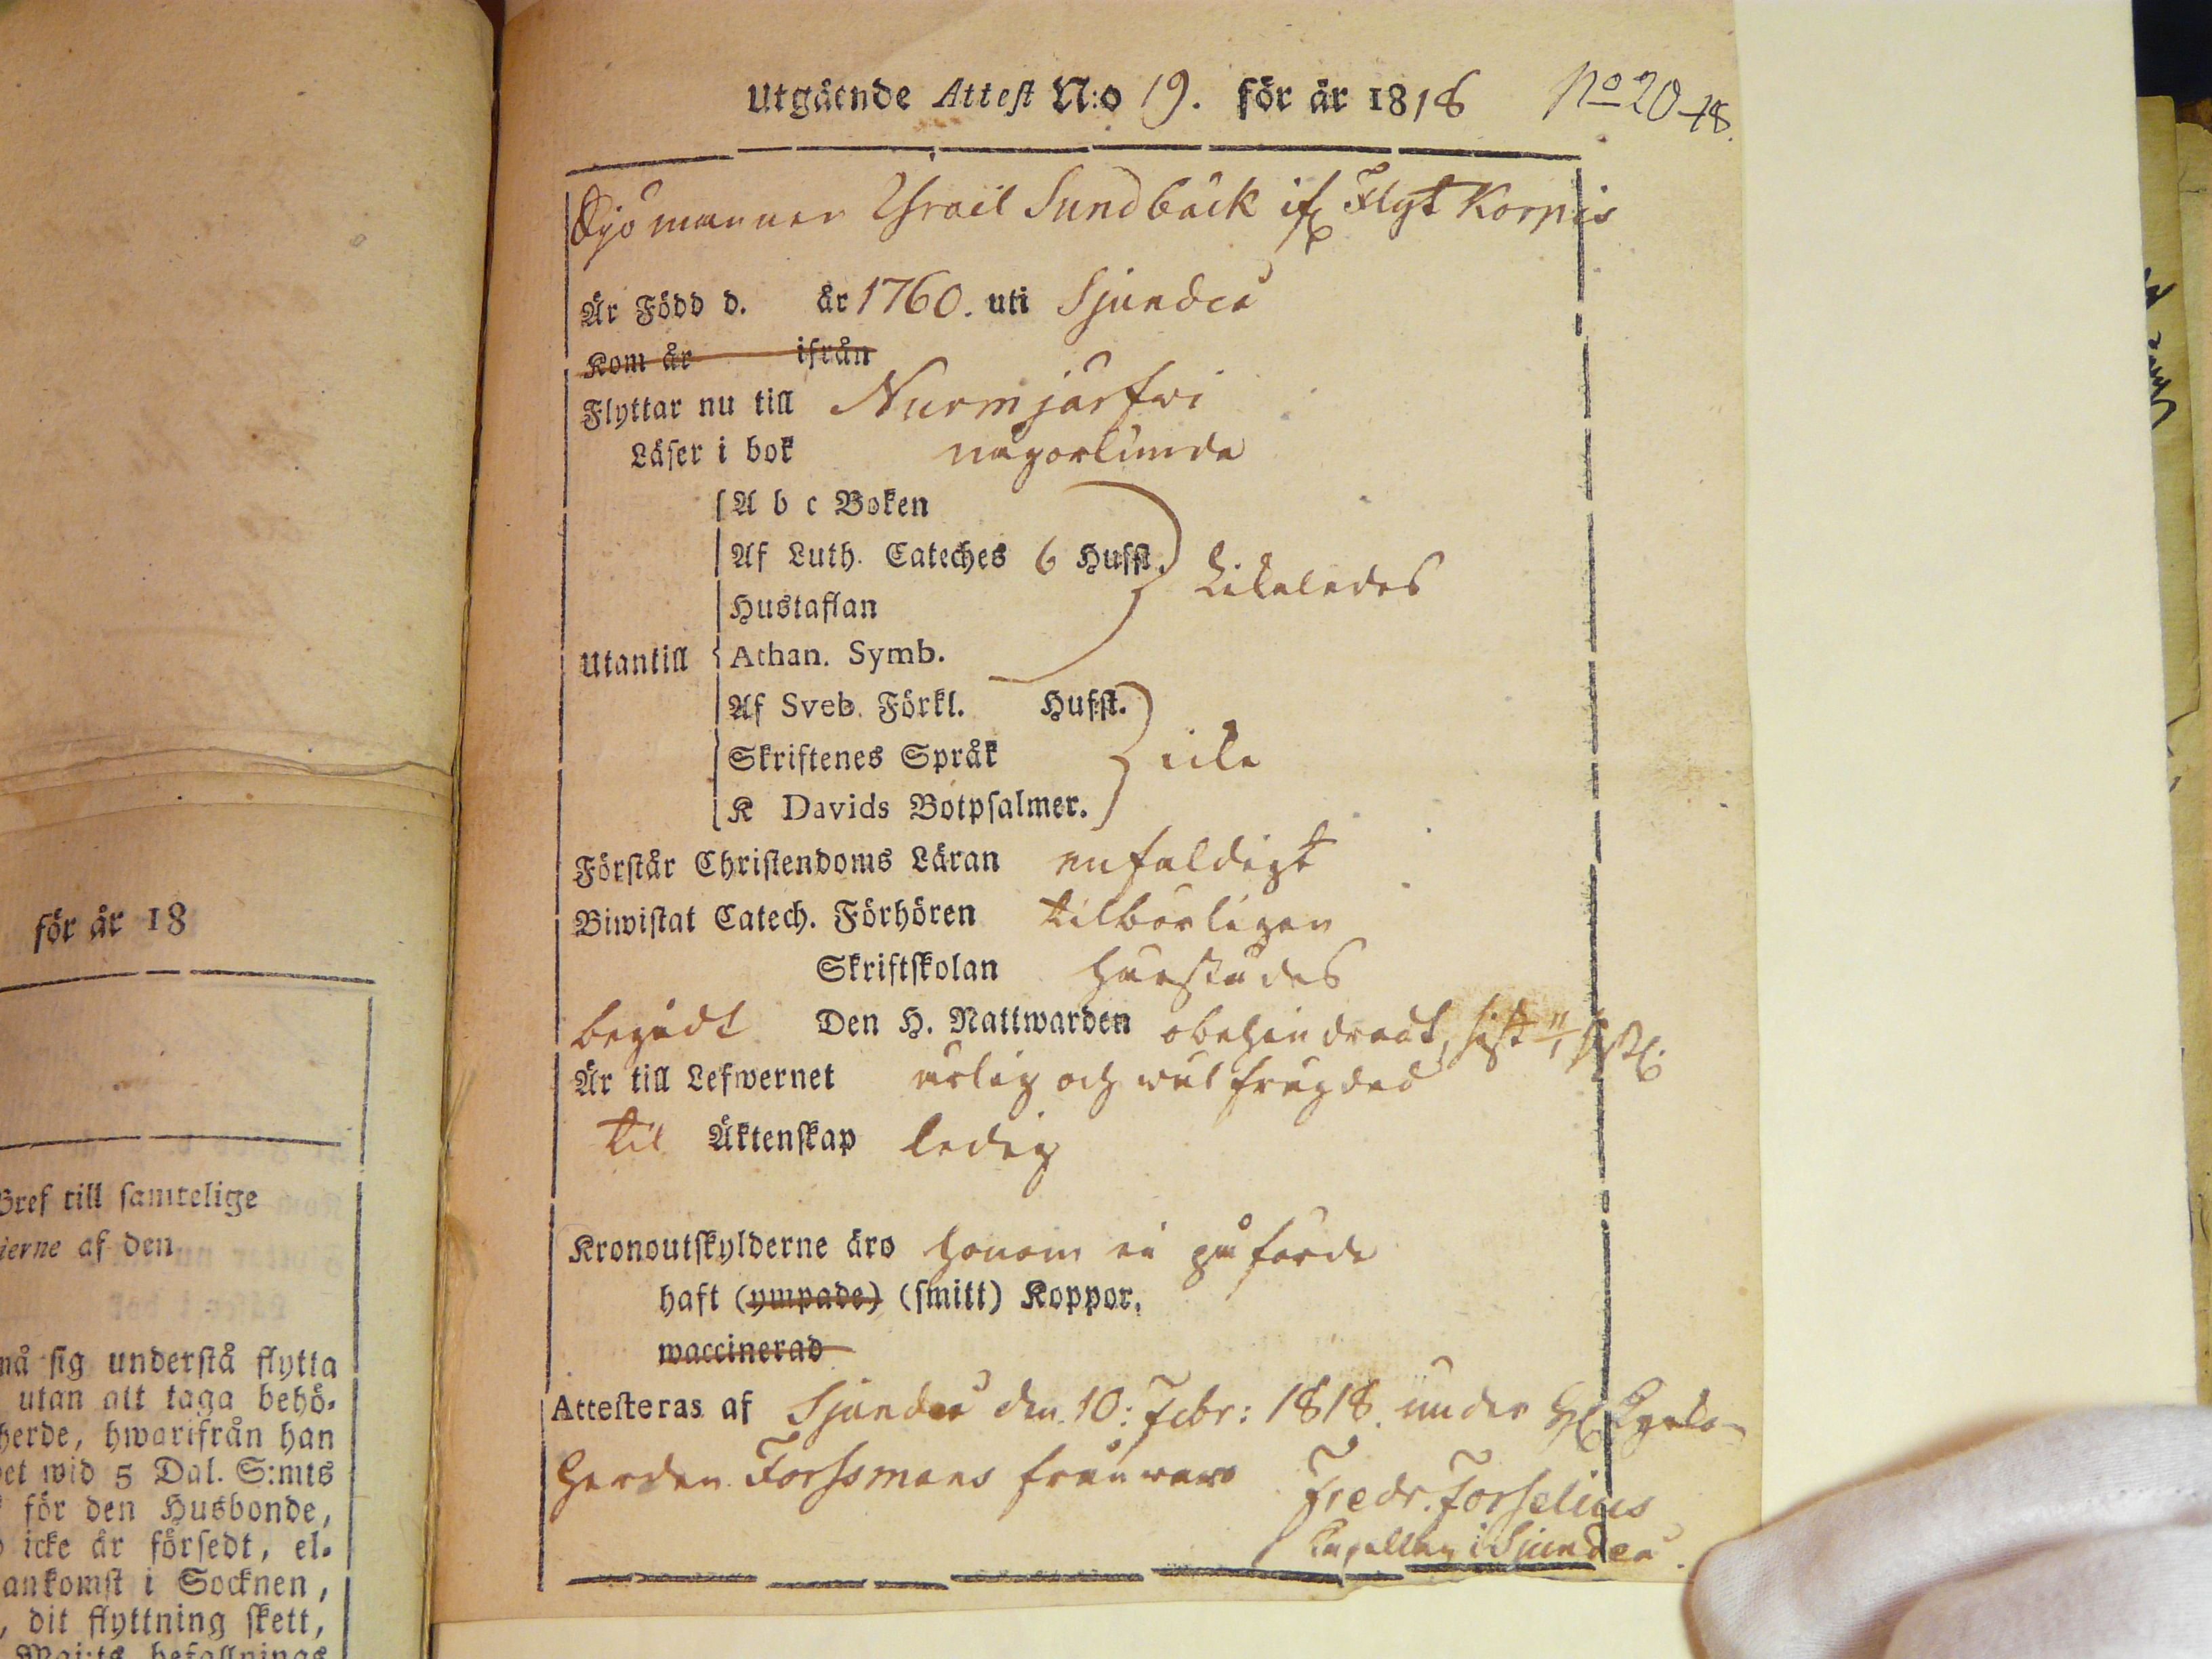 Utgående Attest N:o 19. för år 1818 No 20 18.
Sjömannen Israil Sundbäck if Flyt Korpis
Är Född d. år 1760. uti Sjundeå
Kom år ifrån
Flyttar nu till Nurmjärfwi
Läser i bok någorlunda
A b c Boken
Af Luth. Cateches 6 Hufst.
Likaledes
Hustaflan
Utantill Athan. Symb.
Af Sveb. Förkl. Hufst.
Skriftenes Språk icke
K Davids Botpsalmer.
Förstår Christendoms Läran enfaldigt
Biwistat Catech. Förhören tilbörligen
Skriftskolan
begådt Den H. Nattwarden obehindradt, sist
Är till Lefwernet ärlig och wäl frägdad
til Äktenskap ledig
Kronoutskylderne äro honom ei påförde
haft (ympade) (smitt) Koppor,
waccinerad
Attesteras af Sjundeå den 10: Febr: 1818. under H Kyrko-
Herden Forssmans frånwaro Fredr. Forselius
Capellan i Sjundeå.
för år 18
Bref till samtelige
ierne af den
må sig understå flytta
utan att taga behö-
herde, hwarifrån han
et wid 5 Dal. S:mts
för den Husbonde,
icke är försedt, el-
ankomst i Socknen,
, dit flyttning skett,
Maj:ts befallnings